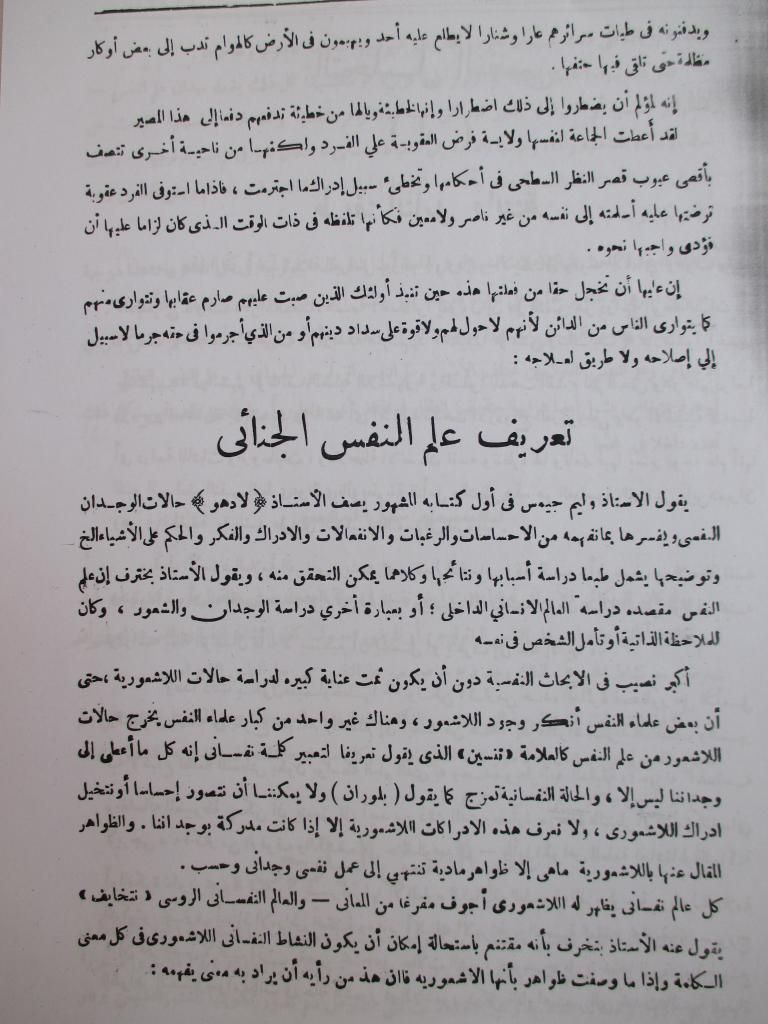 ويدفنونه فى طيات سرائرهم عارا وشنارا لا يطلع عليه أحد ويهيمون فى الأرض كالهوام تدب إلى بعض أوكار
مظلمة حتى تلقى فيها حتفها .
إنه لمؤلم أن يضطروا إلى ذلك اضطرارا وإنها لخطيئة ويالها من خطيئة تدفعهم دفعا إلى هذا المصير
لقد أعطت الجماعة لنفسها ولاية فرض العقوبة علي الفرد ولكنها من ناحية أخرى تتصف
بأقصى عيوب قصر النظر السطحى فى أحكامها وتخطىء سبيل إدراك ما اجترمت ، فاذاما استوفى الفرد عقوبة
ترضيها عليه أسلمته إلى نفسه من غير ناصر ولا معين فكأنها تلفظه فى ذات الوقت الذى كان لزاما عليها أن
تؤدى واجبها نحوه .
إن عليها أن تخجل حقا من فعلتها هذه حين تنبذ أولئك الذين صبت عليهم صارم عقابها وتتوارى منهم
كما يتوارى الناس من الدائن لأنهم لاحول لهم ولا قوة على سداد دينهم أو من الذي أجرموا فى حقه جرما لا سبيل
إلي إصلاحه ولا طريق لعلاجه :
تعريف علم النفس الجنائى
يقول الاستاذ وليم جيمس فى أول كتابه المشهور يصف الأستاذ « لادهو » حالات الوجدان
النفسى ويفسرها بما نفهمه من الاحساسات والرغبات والانفعالات والادراك والفكر والحكم على الأشياء الخ
وتوضيحها يشمل طبعا دراسة أسبابها ونتائجها وكلاهما يمكن التحقق منه ، ويقول الأستاذ بخترف إن علم
النفس مقصده دراسة العالم الانساني الداخلى ؛ أو بعبارة أخري دراسة الوجدان والشعور ، وكان
للملاحظة الذاتية أو تأمل الشخص فى نفسه
أكبر نصيب فى الابحاث النفسية دون أن يكون ثمت عناية كبيره لدراسة حالات اللاشعورية ، حتى
أن بعض علماء النفس أنكر وجود اللاشعور ، وهناك غير واحد من كبار علماء النفس يخرج حالات
اللاشعور من علم النفس كالعلامة « تنسين » الذى يقول تعريفا لتعبير كلمة نفسانى إنه كل ما أعطى إلى
وجداننا ليس إلا ، والحالة النفسانية تمزج كما يقول ( بلوران ) ولا يمكننا أن نتصور إحساسا أو نتخيل
ادراك اللاشعورى ، ولا نعرف هذه الادراكات اللاشعورية إلا إذا كانت مدركة بوجداننا . والظواهر
المقال عنها باللاشعورية ماهى إلا ظواهر مادية تنتهي إلى عمل نفسى وجدانى وحسب .
كل عالم نفسانى يظهر له اللاشعورى أجوف مفرغا من المعانى — والعالم النفسانى الروسى « نتخايف »
يقول عنه الأستاذ بتخرف بأنه مقتنع باستحالة إمكان أن يكون النشاط النفسانى اللاشعورى فى كل معنى
الكلمة وإذا ما وصفت ظواهر بأنها الاشعوريه فاان هذ من رأيه أن يراد به معنى يفهمه :